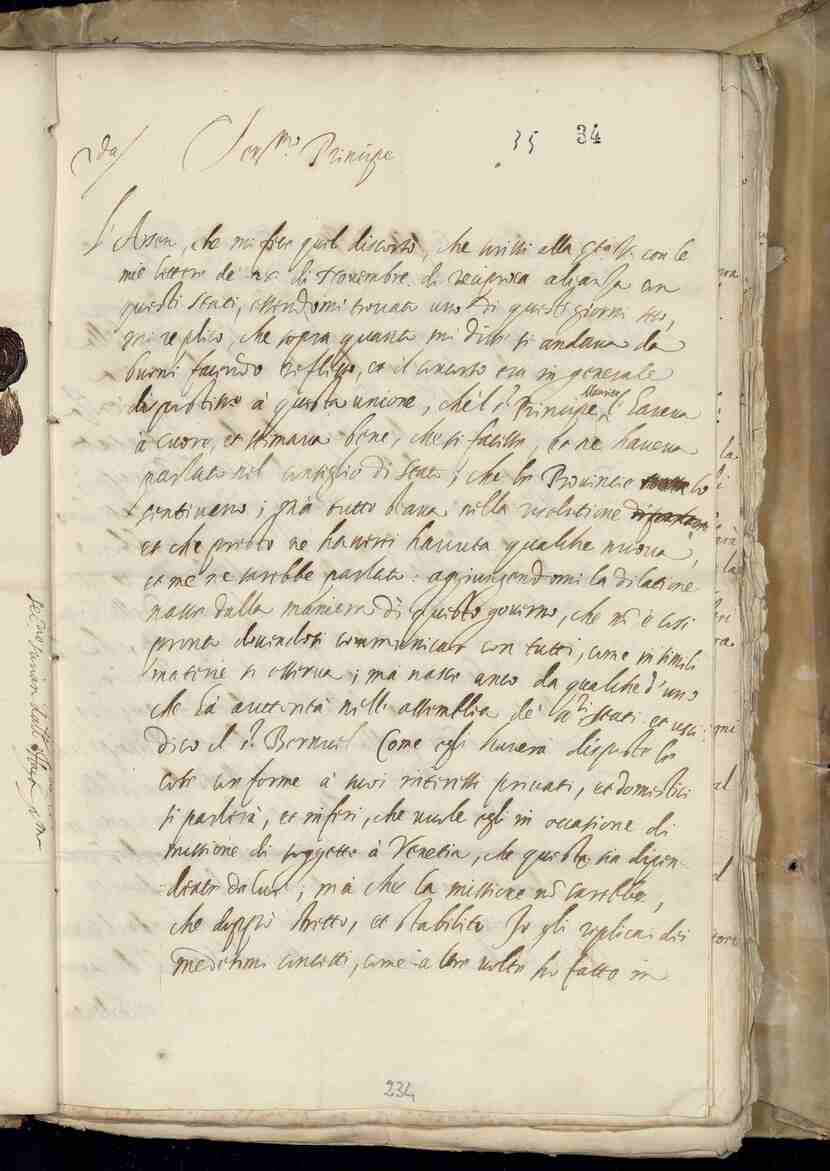 35 34
Ser.mo Principe
L'Arsen, che mi fece quel discorso, che scrissi alla con le
mie lettere de di Novembre di reciproca alianza con
questi Stati, essendomi trovato uno di questi giorni seco,
mi replicò, che sopra quanto mi disse si andava da
buoni facendo riflesso, et il concerto era in generale
dispostissimo à questa unione, che'l s.r Principe Maurizio l'haveva
à cuore, et stimava bene, che si facesse, et ne haveva
parlato nel consiglio di Stato; che le Provincie lo
sentivano; già tutto stava nella risolutione
et che presto ne haverei havuta qualche nuova,
et me ne sarebbe parlato: aggiungendomi la dilatione
nasce dalla maniera di questo governo, che nò è così
pronto dovendosi communicar con tutti, come in simili
materie si osserva; mà nasce anco da qualched'uno
che hà auttorità nell'assemblea de s.ri Stati et
dico il s.r Bernvel. Come egli haverà disposte le
cose conforme à suoi interessi privati, et domestici
si parlerà, et inferì, che vuole egli in occasione di
missione di soggetto à Venetia, che questo sia dipen
dente da lui; mà che la missione nò sarebbe,
che doppò stretto, et stabilito. Io gli replicai dei
medesimi concetti, come altre volte hò fatto in
234